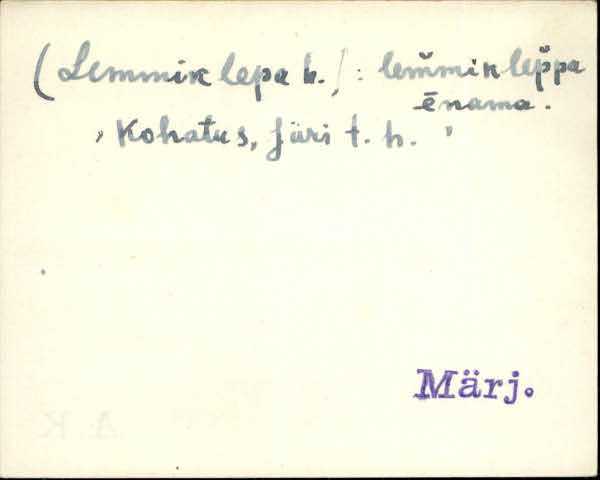 (Lemmiklepa h.): lem̆miklep̆pa
ēnama.
, Kohatus, Jüri t. h. '
Märj.